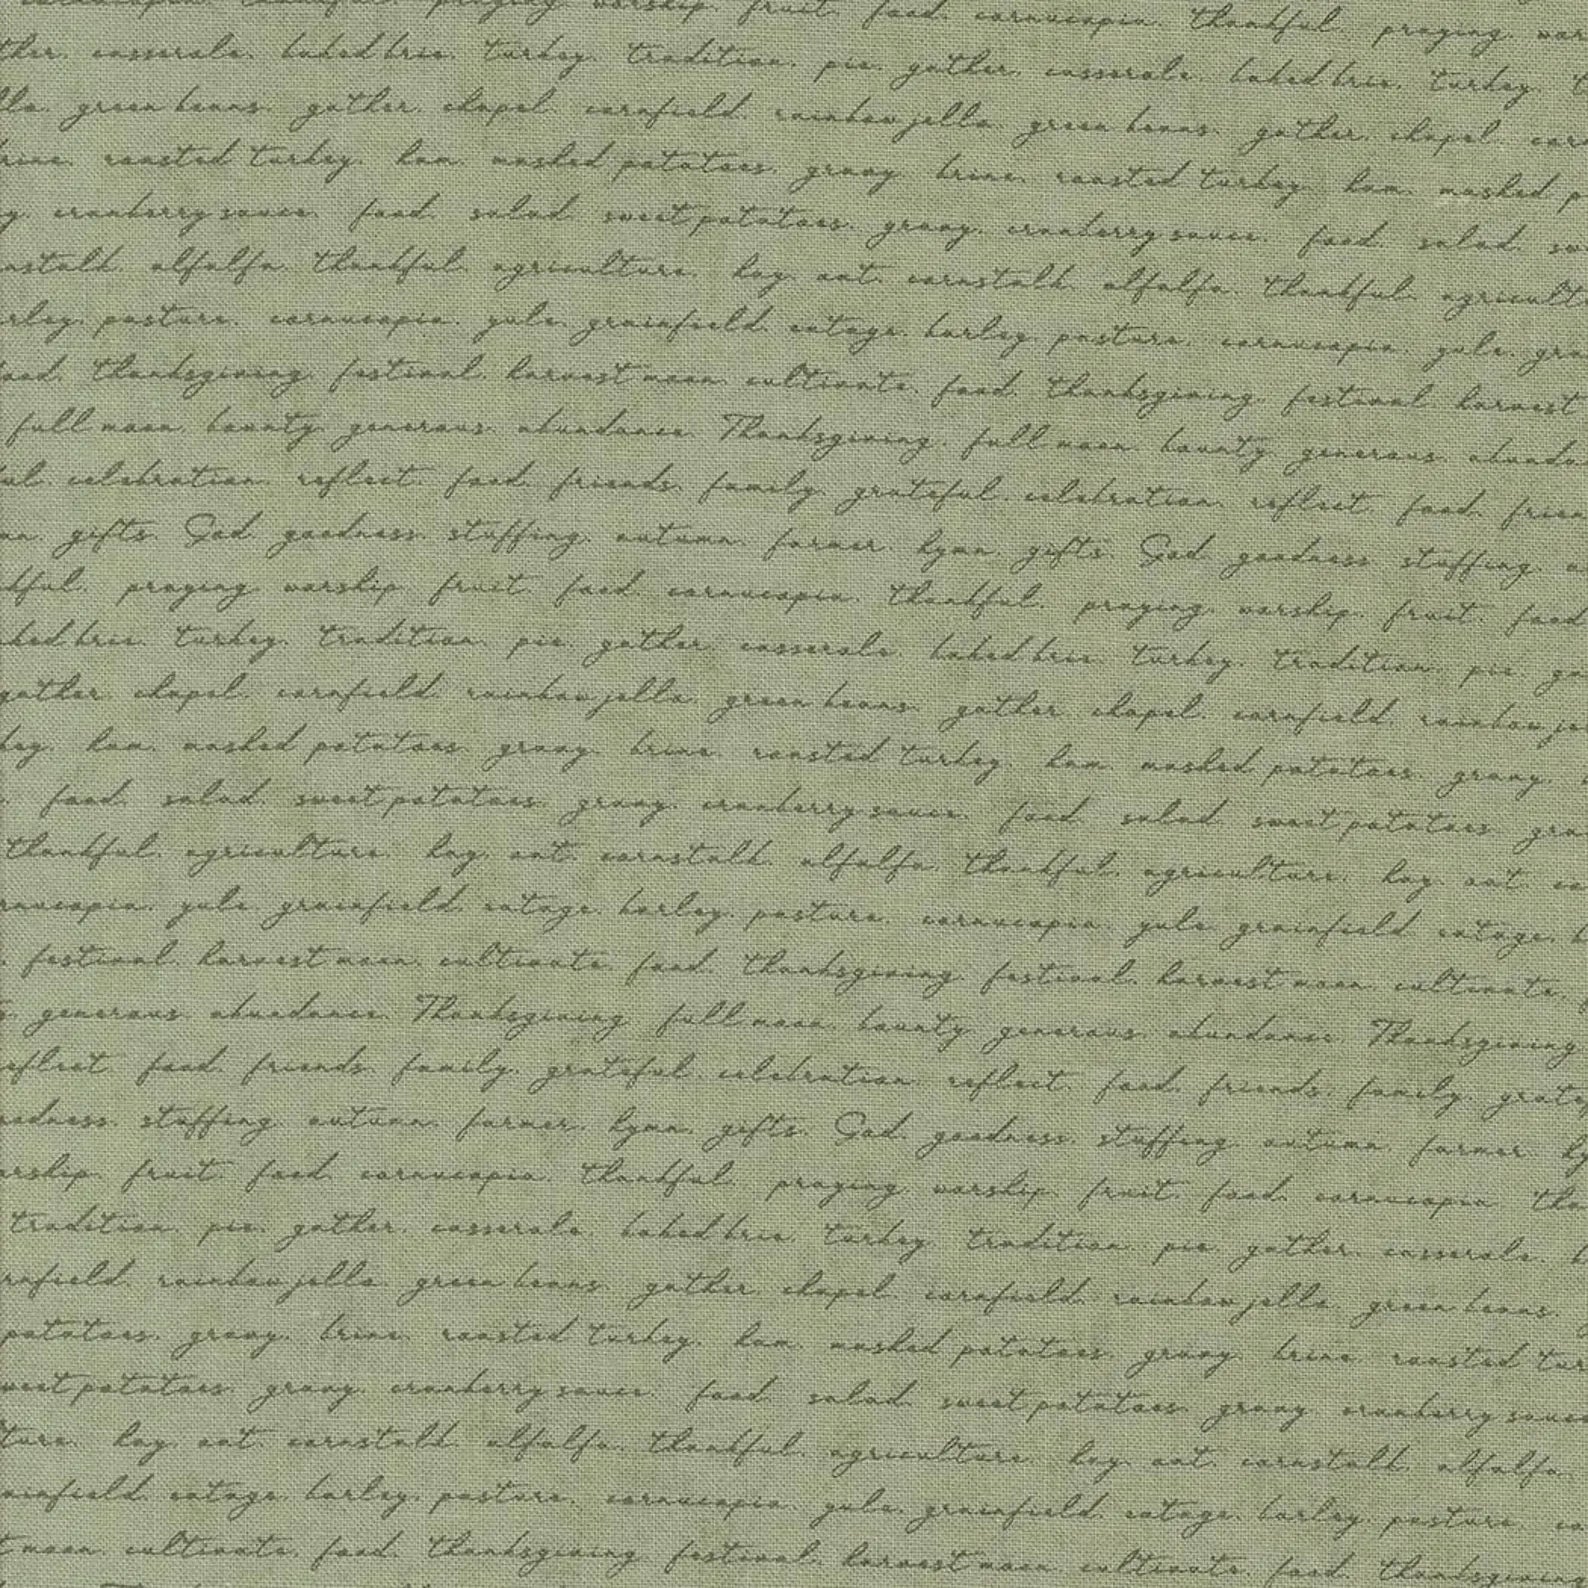 cornucopia. thankful. praying. worship. fruit. food. cornucopia. thankful. praying.
casserole. baked brie. turkey. tradition. pie. gather. casserole. baked brie. turkey.
green beans. gather. chapel. cornfield. rainbow jello. green beans. gather. chapel.
brine. roasted turkey. ham. mashed potatoes. gravy. brine. roasted turkey. ham. mashed
cranberry sauce. food. salad. sweet potatoes. gravy. cranberry sauce. food. salad.
alfalfa. thankful. agriculture. hay. oat. cornstalk. alfalfa. thankful.
pasture. cornucopia. yule. grainfield. barley. pasture. cornucopia. yule.
food. thanksgiving. festival. harvest moon. cultivate. food. thanksgiving. festival. harvest
full moon. bounty. generous. abundance. Thanksgiving. full moon. bounty. generous.
celebration. reflect. food. friends. family. grateful. celebration. reflect. food.
gifts. God. goodness. stuffing. autumn. farmer. hymn. gifts. God. goodness. stuffing.
praying. worship. fruit. food. cornucopia. thankful. praying. worship. fruit. food
brie. turkey. tradition. pie. gather. casserole. baked brie. turkey. tradition. pie.
gather. chapel. cornfield. rainbow jello. green beans. gather. chapel. cornfield. rainbow
ham. mashed potatoes. gravy. brine. roasted turkey. ham. mashed potatoes. gravy.
food. salad. sweet potatoes. gravy. cranberry sauce. food. salad. sweet potatoes.
thankful. agriculture. hay. oat. cornstalk. alfalfa. thankful. agriculture. hay. oat.
yule. grainfield. barley. pasture. cornucopia. yule. grainfield.
festival. harvest moon. cultivate. food. thanksgiving. festival. harvest moon. cultivate.
generous. abundance. Thanksgiving. full moon. bounty. generous. abundance. Thanksgiving
reflect. food. friends. family. grateful. celebration. reflect. food. friends. family.
stuffing. autumn. farmer. hymn. gifts. God. goodness. stuffing. autumn. farmer.
fruit. food. cornucopia. thankful. praying. worship. fruit. food. cornucopia.
tradition. pie. gather. casserole. baked brie. turkey. tradition. pie. gather. casserole.
rainbow jello. green beans. gather. chapel. cornfield. rainbow jello. green beans.
potatoes. gravy. brine. roasted turkey. ham. mashed potatoes. gravy. brine. roasted
sweet potatoes. gravy. cranberry sauce. food. salad. sweet potatoes. gravy. cranberry
hay. oat. cornstalk. alfalfa. thankful. agriculture. hay. oat. cornstalk. alfalfa.
barley. pasture. cornucopia. yule. grainfield. barley. pasture.
moon. cultivate. food. thanksgiving. festival. harvest moon. cultivate. food. thanksgiving